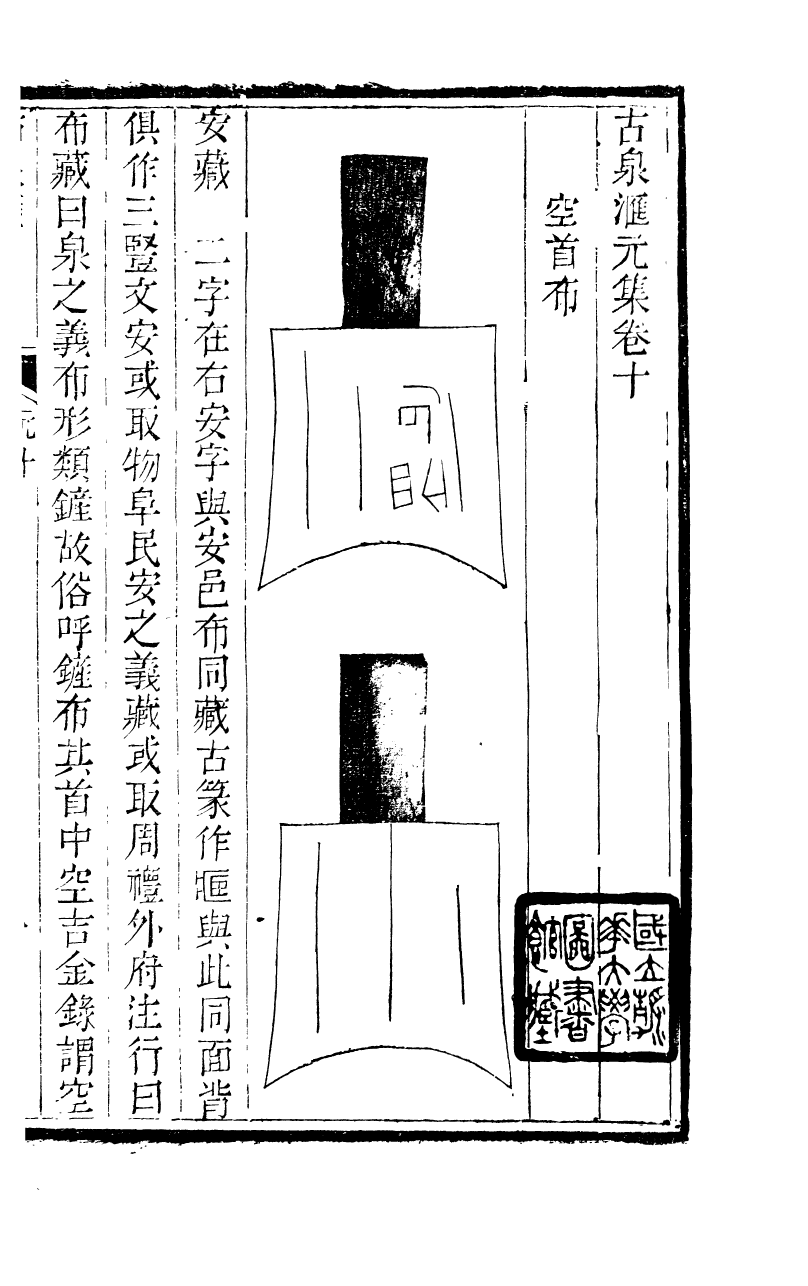 古泉滙元集卷十
空首布
安藏　二字在右安字與安邑布同藏古篆作匨與此同面背
俱作三豎文安或取物阜民安之義藏或取周禮外府注行曰
布藏曰泉之義布形類鏟故俗呼鏟布其首中空吉金錄謂空
元十
國立清
華大學
圖書
館藏